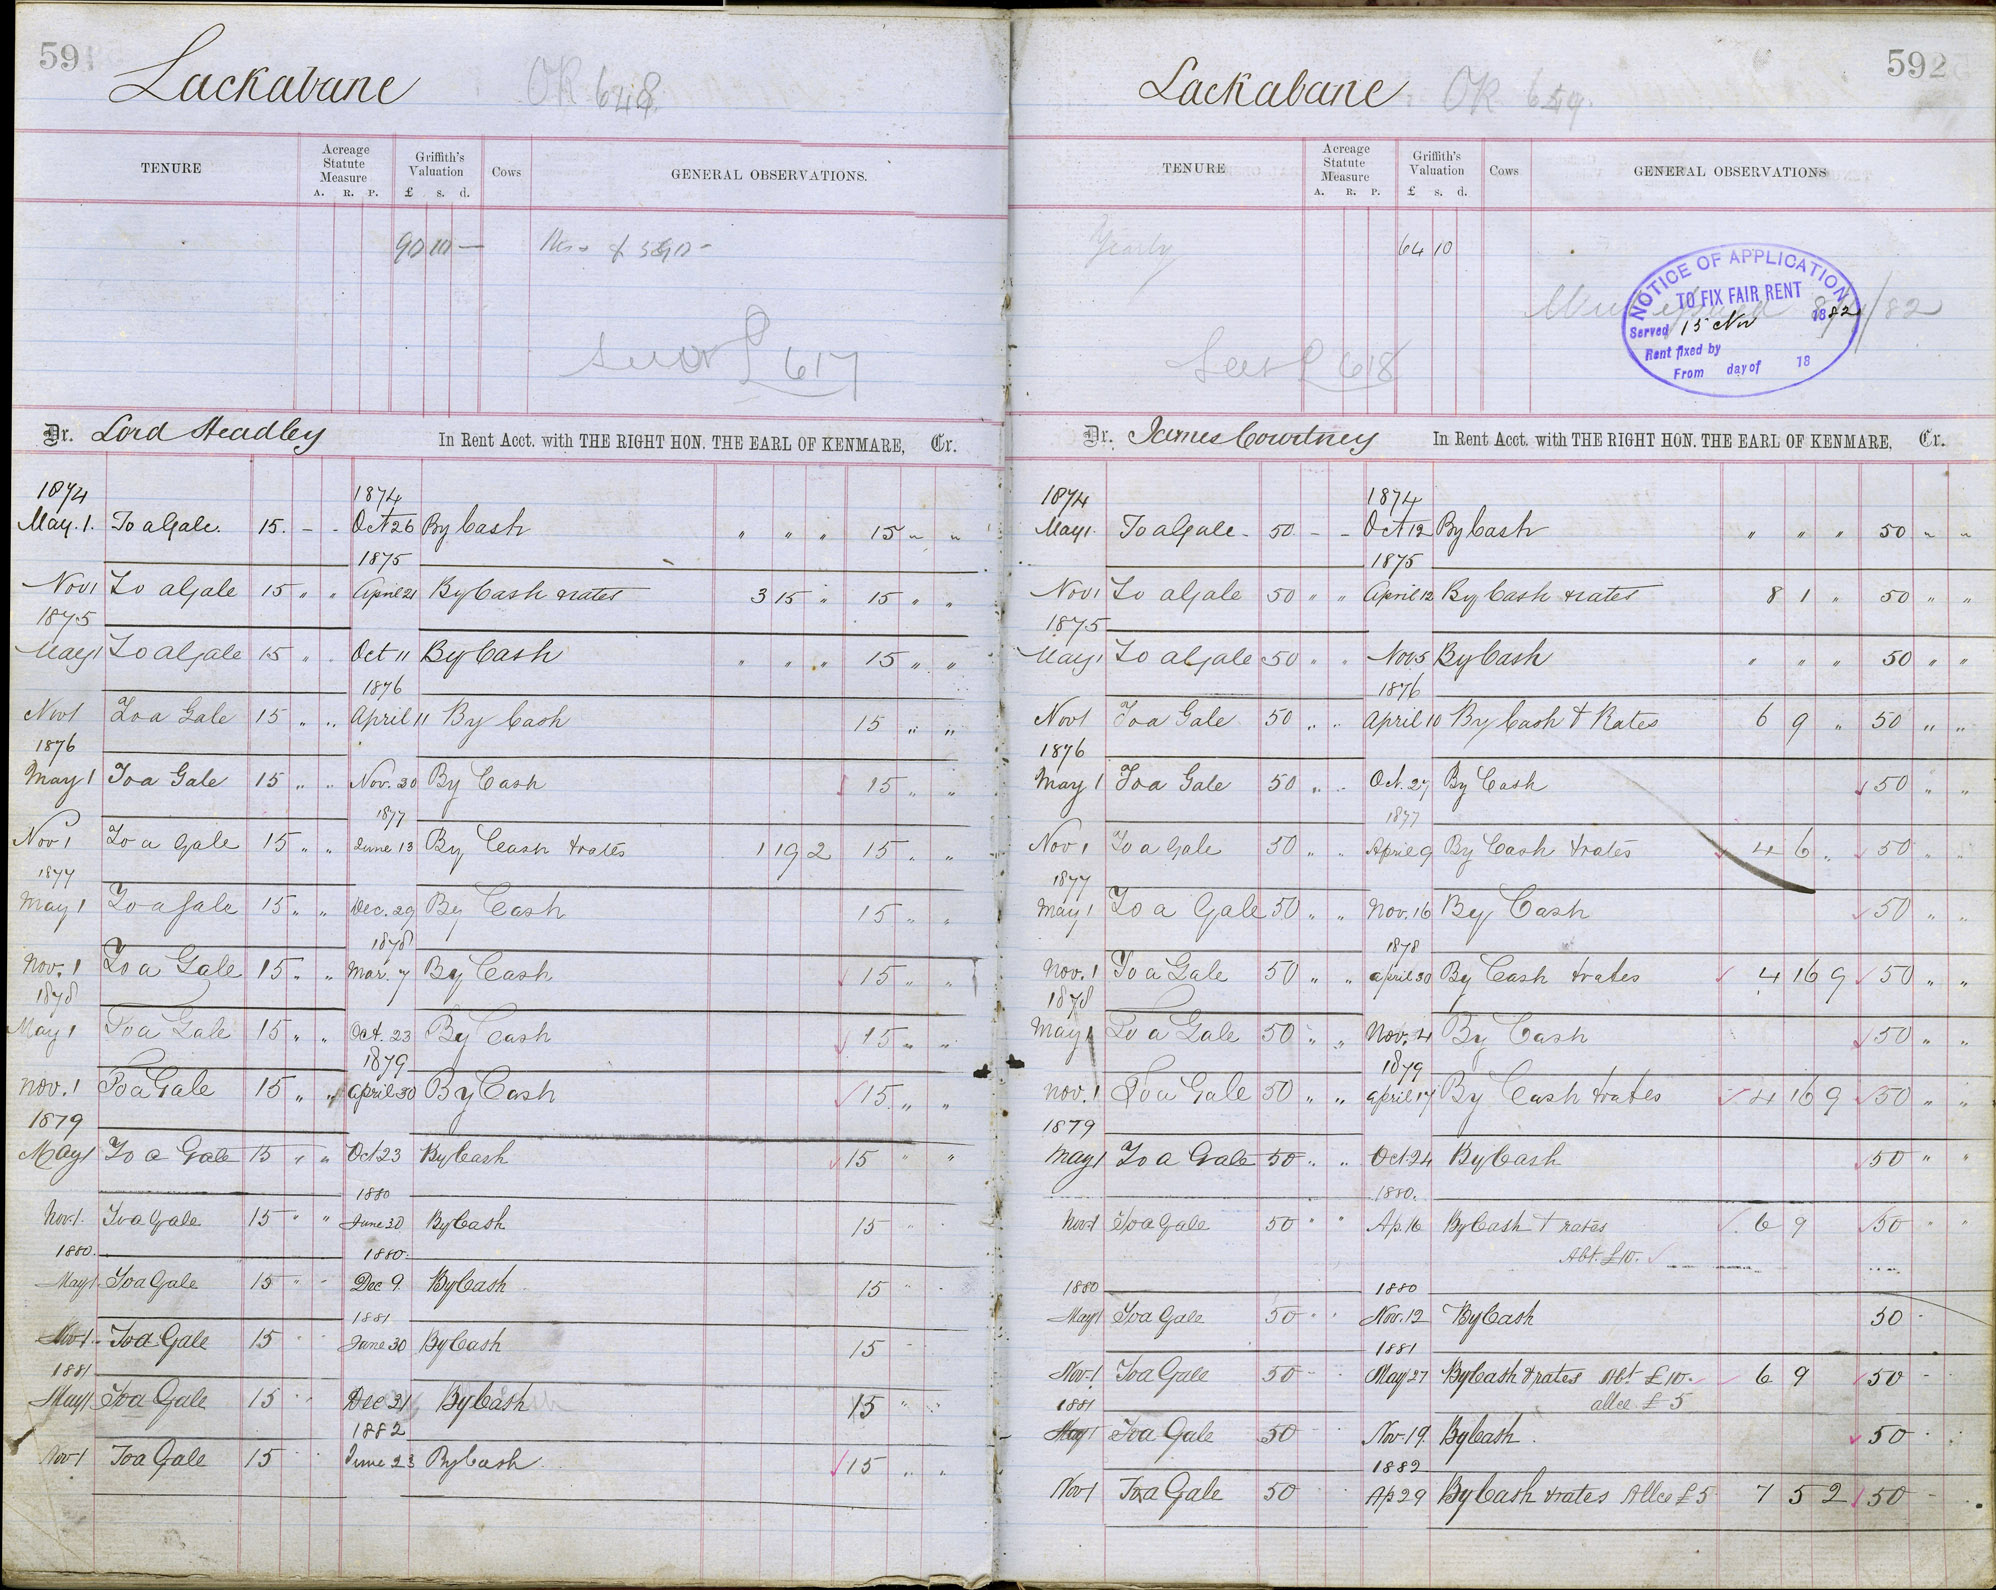 591
Lackabane OK 648
TENURE
Acreage Statute Measure
A. R. P.
Griffith's Valuation
£ s. d.
Cows
GENERAL OBSERVATIONS.
90 10 —
617
Dr. Lord Headley In Rent Acct. with THE RIGHT HON. THE EARL OF KENMARE, Cr.
1874 1874
May. 1. To a Gale. 15. - - Oct 26 By Cash " " " 15 " "
1875
Nov 1 To a Gale 15 " " April 21 By Cash & rates 3 15 " 15 " "
1875
May 1 To a Gale 15 " " Oct 11 By Cash " " " 15 " "
1876
Nov 1 To a Gale 15 " " April 11 By Cash 15 " "
1876
May 1 To a Gale 15 " " Nov. 30 By Cash 15 " "
1877
Nov 1 To a Gale 15 " " June 13 By Cash & rates 1 19 2 15 " "
1877
May 1 To a Gale 15 " " Dec. 29 By Cash 15 " "
1878
Nov. 1 To a Gale 15 " " Mar. 7 By Cash 15 " "
1878
May 1 To a Gale 15 " " Oct. 23 By Cash 15 " "
1879
Nov. 1 To a Gale 15 " " April 30 By Cash 15 " "
1879
May 1 To a Gale 15 " " Oct 23 By Cash 15 " "
1880
Nov. 1. To a Gale 15 " " June 30 By Cash 15 "
1880. 1880.
May 1. To a Gale 15 " " Dec 9. By Cash 15 "
1881
Nov. 1. To a Gale 15 " " June 30 By Cash 15 "
1881
May 1 To a Gale 15 " " Dec 31 By Cash 15 " "
1882
Nov 1 To a Gale 15 " " June 23 By Cash 15 " "
592
Lackabane OK 649.
TENURE
Acreage Statute Measure
A. R. P.
Griffith's Valuation
£ s. d.
Cows
GENERAL OBSERVATIONS
Yearly 64 10
NOTICE OF APPLICATION
TO FIX FAIR RENT
Served 15 Nov 1882
Rent fixed by
From day of 18
618
Dr. James Courtney In Rent Acct. with THE RIGHT HON. THE EARL OF KENMARE, Cr.
1874 1874
May 1. To a Gale - 50 - - Oct 12 By Cash " " " 50 " "
1875
Nov 1 To a Gale 50 " " April 12 By Cash & rates 8 1 " 50 " "
1875
May 1 To a Gale 50 " " Nov 5 By Cash " " " 50 " "
1876
Nov 1 To a Gale 50 " " April 10 By Cash & Rates 6 9 " 50 " "
1876
May 1 To a Gale 50 " " Oct. 27 By Cash 50 " "
1877
Nov 1 To a Gale 50 " " April 9 By Cash & rates 4 6 " 50 " "
1877
May 1 To a Gale 50 " " Nov. 16 By Cash 50 " "
1878
Nov. 1 To a Gale 50 " " April 30 By Cash & rates 4 16 9 50 " "
1878
May 1 To a Gale 50 " " Nov. 4 By Cash 50 " "
1879
Nov. 1 To a Gale 50 " " April 17 By Cash & rates 4 16 9 50 " "
1879
May 1 To a Gale 50 " " Oct 24 By Cash 50 " "
1880.
Nov. 1 To a Gale 50 " " Ap. 16 By Cash & rates 6 9 50 " "
Abt. £10.
1880 1880
May 1 To a Gale 50 " " Nov. 12 By Cash 50 "
1881
Nov. 1 To a Gale 50 " " May 27 By Cash & rates Abt £10. 6 9 50 "
1881 allce £5
May 1 To a Gale 50 Nov. 19. By Cash 50 "
1882
Nov 1 To a Gale 50 Ap 29 By Cash & rates Allce £5 7 5 2 50 "